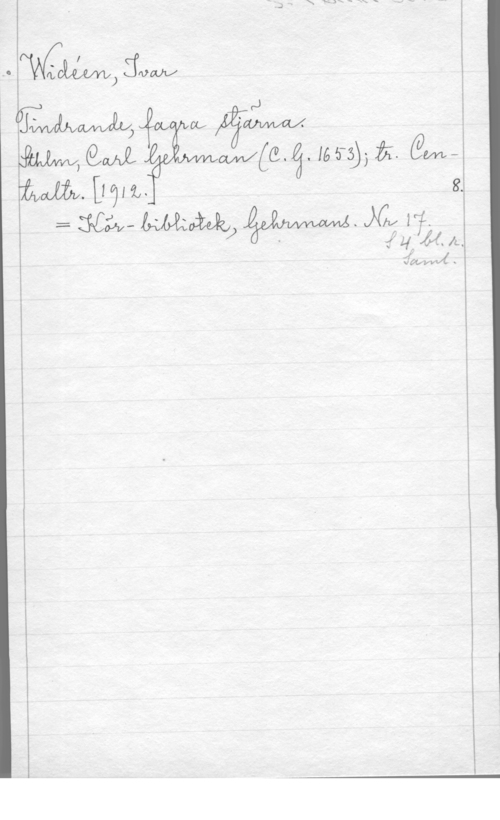 Widéen, Ivar
Tindrande, fagra stjärna.
Sthlm, Carl Gehrman (C. G. 1653); tr. Cen-
traltr. [1912.] 8.
= Kör-bibliotek, Gehrmans. Nr 17.
f 4° bl. k.
Saml.